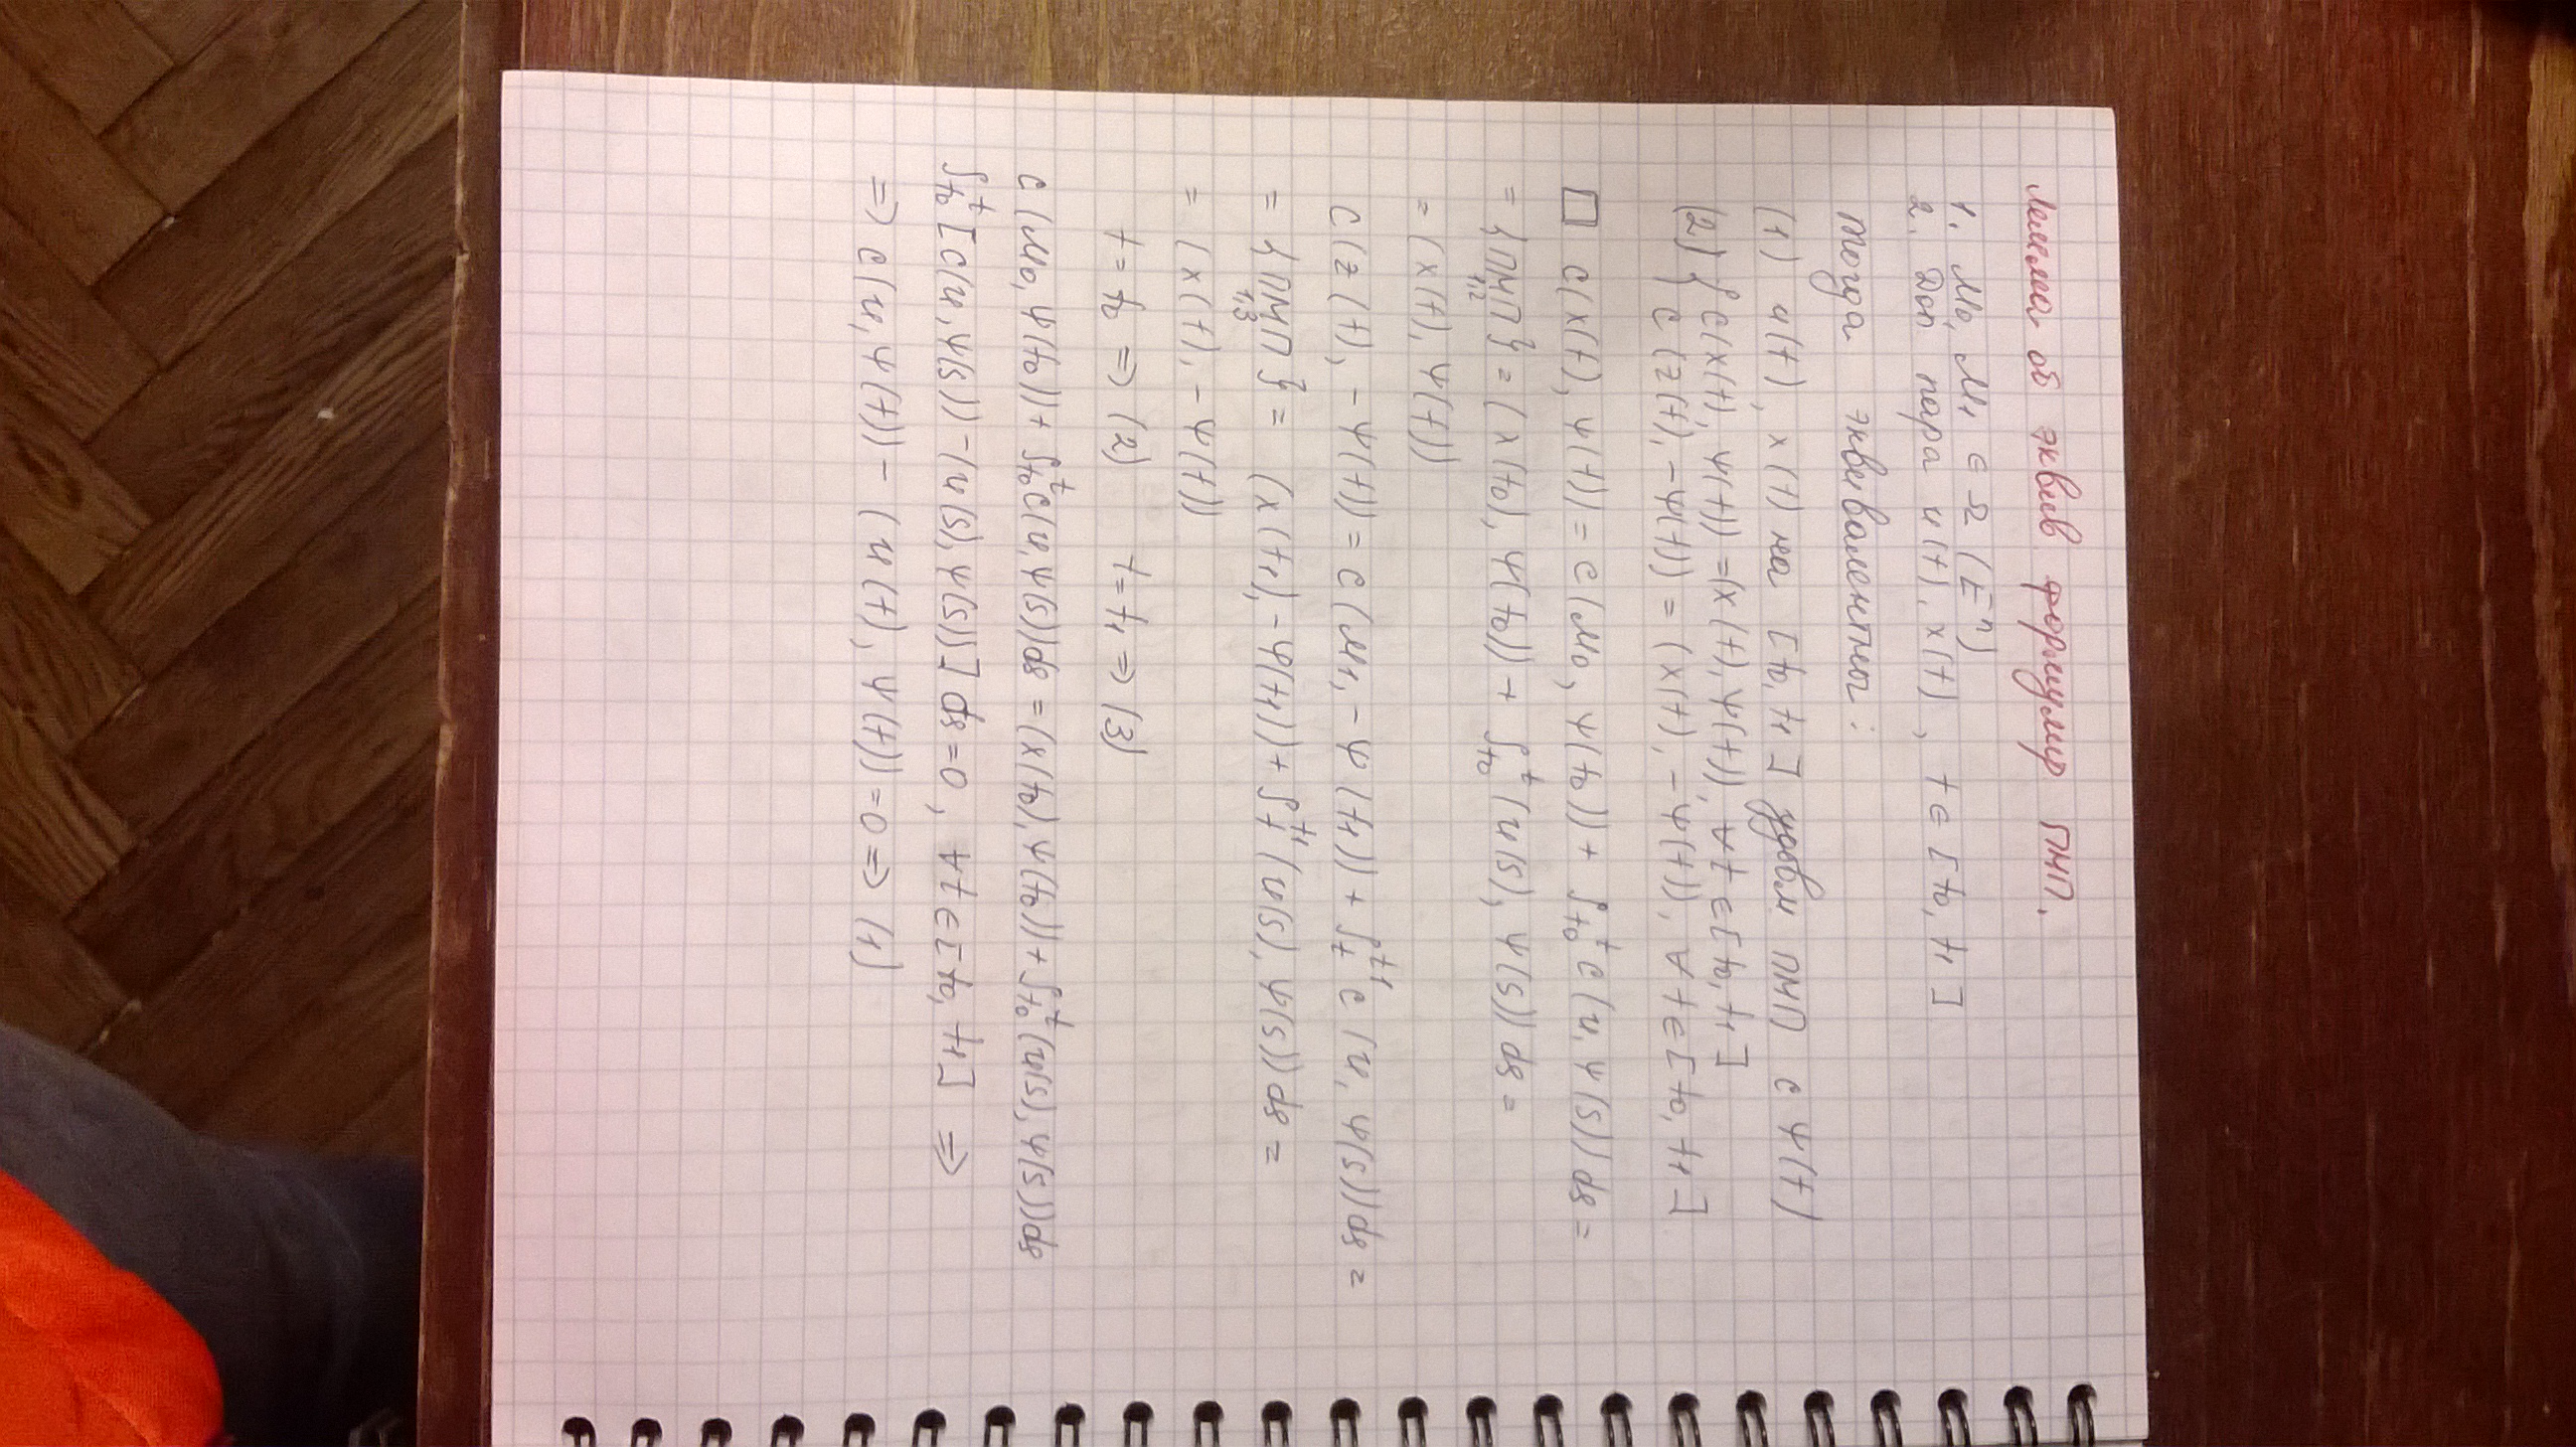 Лемма об эквив формулир ПМП.
1. M₀, M₁ ∈ Ω (Eⁿ)
2. Доп пара u(t), x(t), t ∈ [t₀, t₁]
Тогда эквивалентны:
(1) u(t), x(t) на [t₀, t₁] удовл ПМП с ψ(t)
(2) { c(x(t), ψ(t)) = (x(t), ψ(t)), ∀t ∈ [t₀, t₁]
{ c(z(t), -ψ(t)) = (x(t), -ψ(t)), ∀t ∈ [t₀, t₁]
□ c(x(t), ψ(t)) = c(M₀, ψ(t₀)) + ∫ₜ₀ᵗ c(u, ψ(s)) ds =
= {ПМП 1,2} = (x(t₀), ψ(t₀)) + ∫ₜ₀ᵗ (u(s), ψ(s)) ds =
= (x(t), ψ(t))
c(z(t), -ψ(t)) = c(M₁, -ψ(t₁)) + ∫ₜᵗ¹ c(u, ψ(s)) ds =
= {ПМП 1,3} = (x(t₁), -ψ(t₁)) + ∫ₜᵗ¹ (u(s), ψ(s)) ds =
= (x(t), -ψ(t))
t = t₀ ⇒ (2) t = t₁ ⇒ (3)
c(M₀, ψ(t₀)) + ∫ₜ₀ᵗ c(u, ψ(s)) ds = (x(t₀), ψ(t₀)) + ∫ₜ₀ᵗ (u(s), ψ(s)) ds
∫ₜ₀ᵗ [c(u, ψ(s)) - (u(s), ψ(s))] ds = 0, ∀t ∈ [t₀, t₁] ⇒
⇒ c(u, ψ(t)) - (u(t), ψ(t)) = 0 ⇒ (1)